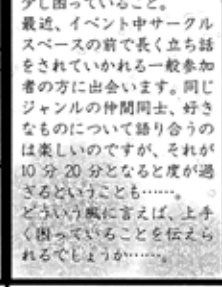 少し困っていること。
最近、イベント中サークル
スペースの前で長く立ち話
をされていかれる一般参加
者の方に出会います。同じ
ジャンルの仲間同士、好き
なものについて語り合うの
は楽しいのですが、それが
10分20分となると度が過
ぎるということも……。
どういう風に言えば、上手
く困っていることを伝えら
れるでしょうか……。